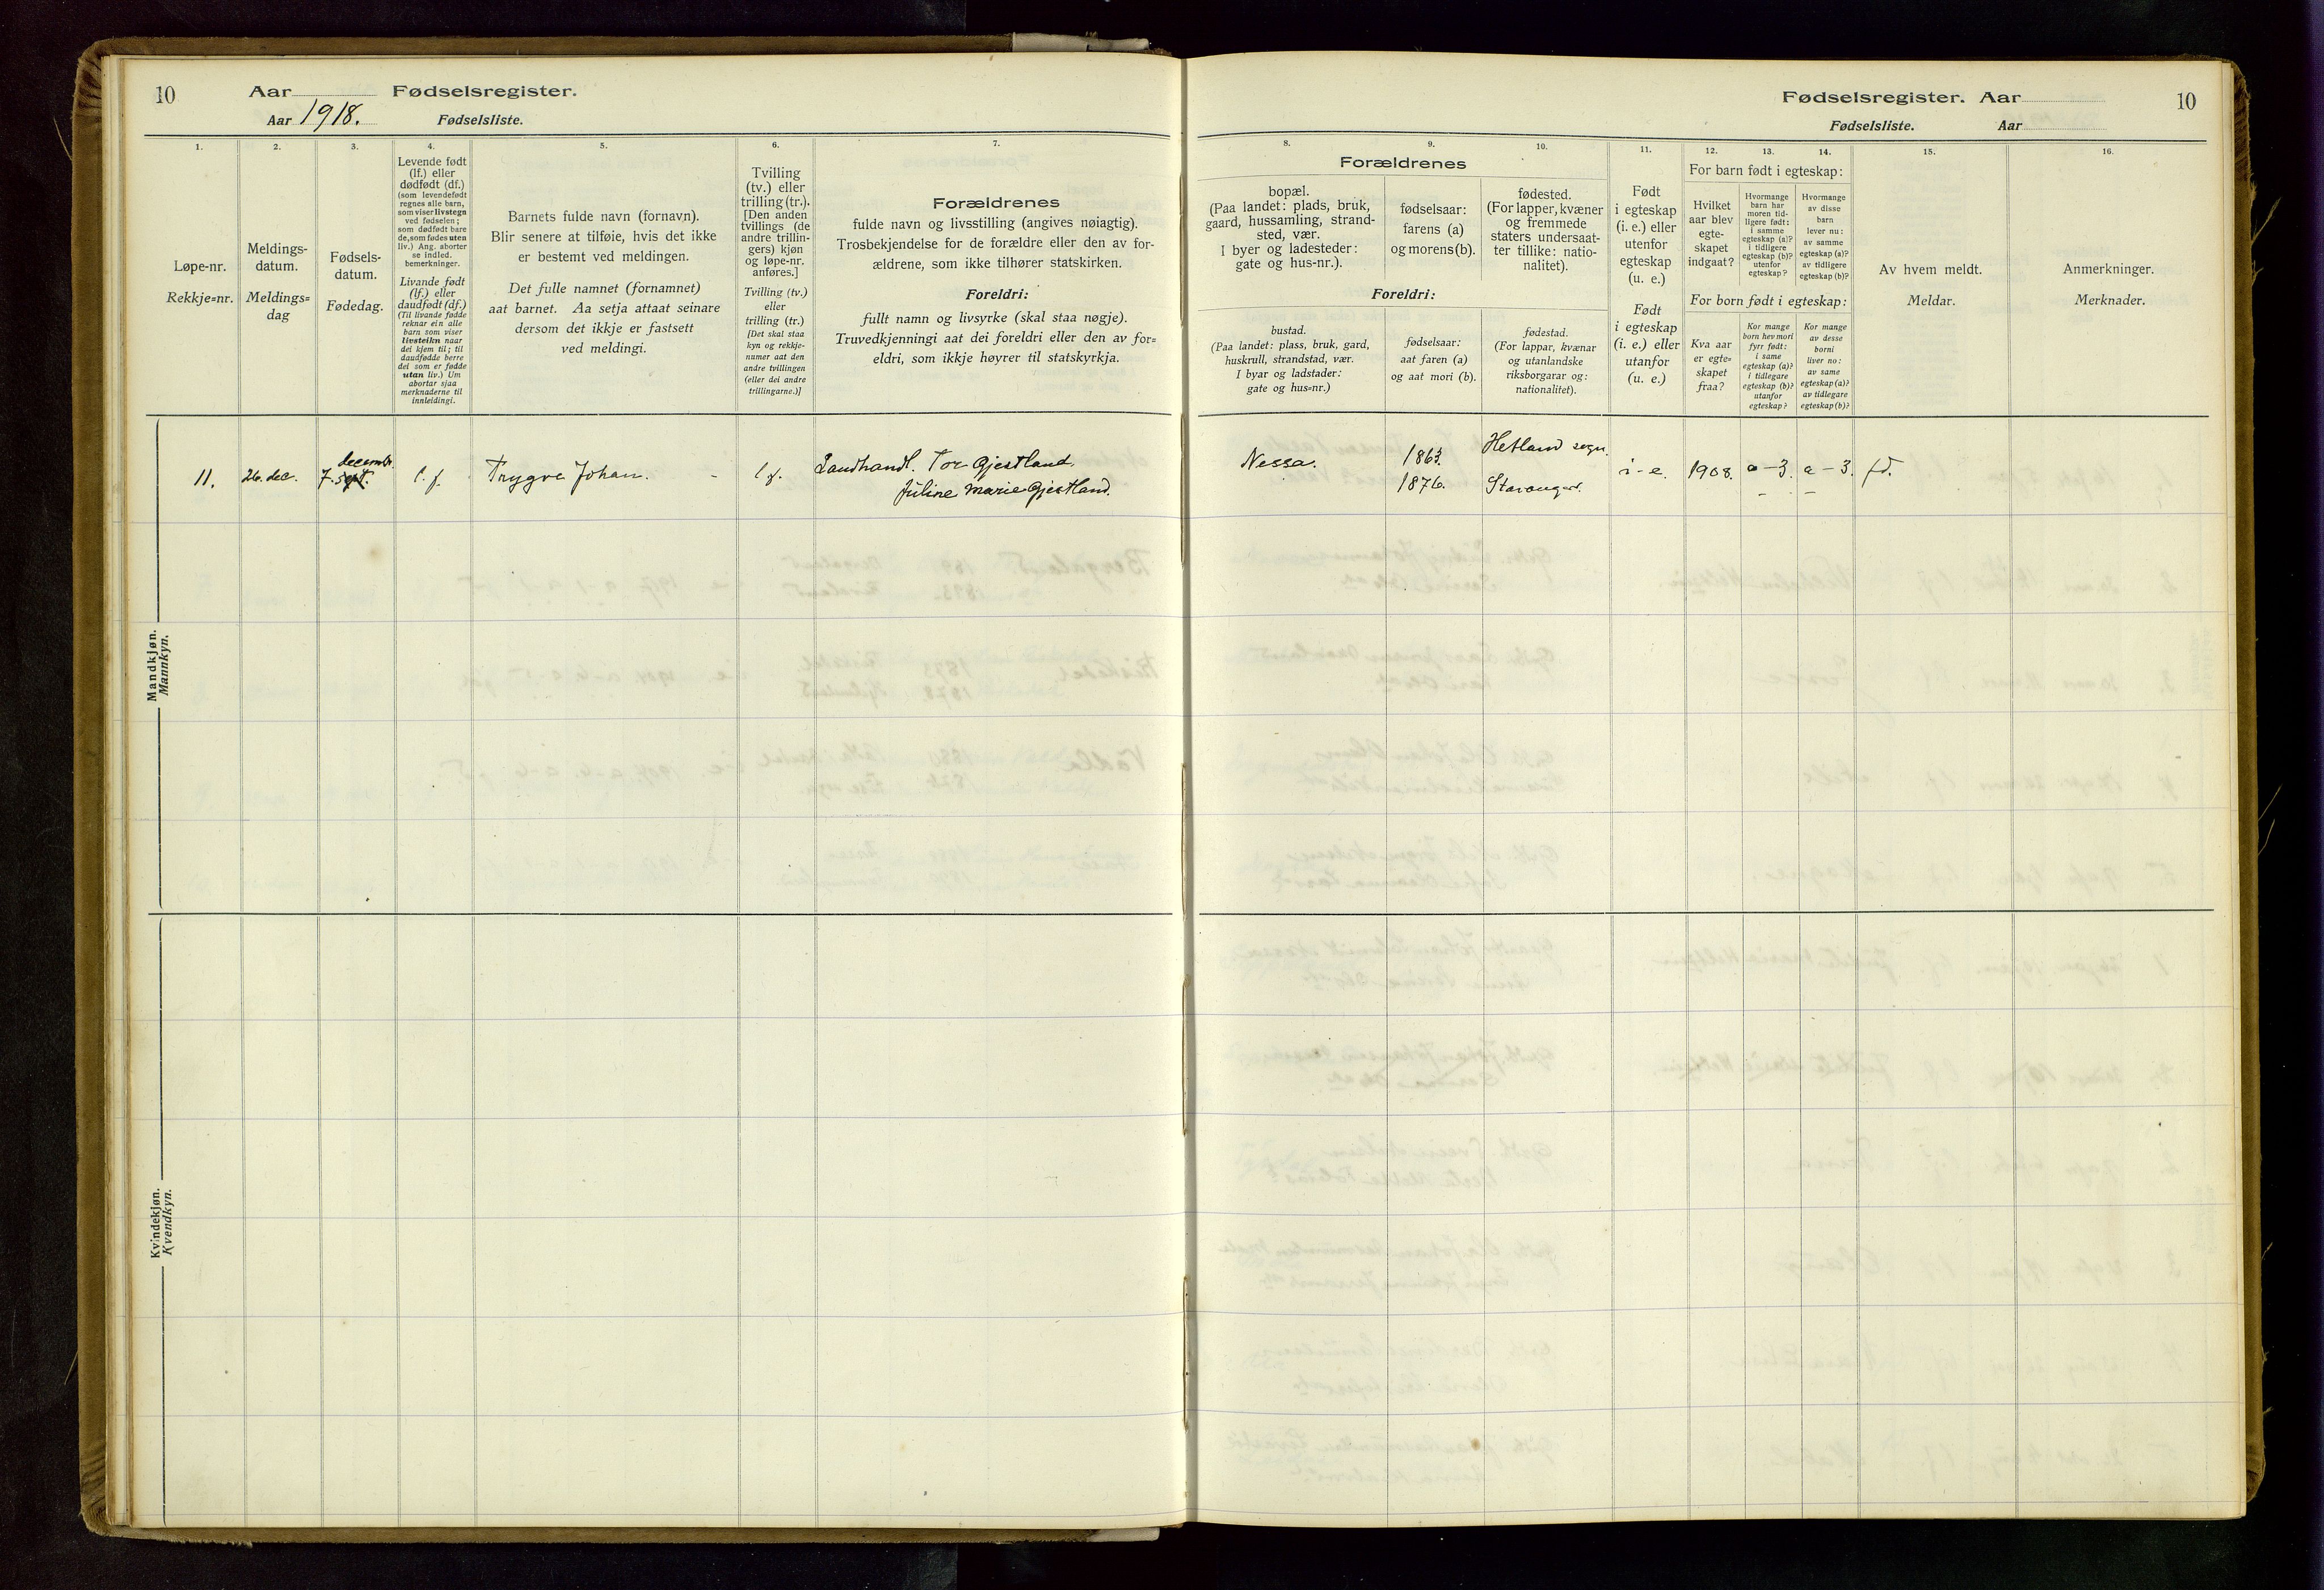 10
Aar
Fødselsregister.
Aar 1918.
Fødselsliste.
1.
Løpe-nr.
Rekkje=nr.
2.
Meldings-
datum.
Meldings=
dag
3.
Fødsels-
datum.
Fødedag.
4.
Levende født
(lf.) eller
dødfødt (df.)
(som levendefødt
regnes alle barn,
som viser livstegn
ved fødselen;
som dødfødt bare
de, som fødes uten
liv.) Ang. aborter
se indled.
bemerkninger.
Livande født
(lf.) eller
daudfødt (df.)
(Til livande fødde
reknar ein alle
barn som viser
livsteikn naar
dei kjem til; til
daudfødde berre
dei som er fødde
utan liv.) Um
abortar sjaa
merknaderne til
innleidingi.
5.
Barnets fulde navn (fornavn).
Blir senere at tilføie, hvis det ikke
er bestemt ved meldingen.
Det fulle namnet (fornamnet)
aat barnet. Aa setja attaat seinare
dersom det ikkje er fastsett
ved meldingi.
6.
Tvilling
(tv.) eller
trilling (tr.).
[Den anden
tvillings (de
andre trillin-
gers) kjøn
og løpe-nr.
anføres.]
Tvilling (tv.)
eller
trilling (tr.)
[Det skal staa
kyn og rekkje-
numer aat den
andre tvillingen
(eller dei andre
trillingarne.)]
7.
Forældrenes
fulde navn og livsstilling (angives nøiagtig).
Trosbekjendelse for de forældre eller den av for-
ældrene, som ikke tilhører statskirken.
Foreldri:
fullt namn og livsyrke (skal staa nøgje).
Truvedkjenningi aat dei foreldri eller den av for=
eldri, som ikkje høyrer til statskyrkja.
Mandkjøn.
Mannkyn.
11.
26. dec.
decembr.
7. sept.
l. f.
Trygve Johan.
-
l. f.
Landhandl. Tor Gjestland.
Juline Marie Gjestland.
Kvindekjøn.
Kvendkyn.
Fødselsregister. Aar
10
Fødselsliste.
Aar
8.
9.
10.
Forældrenes
bopæl.
(Paa landet: plads, bruk,
gaard, hussamling, strand-
sted, vær.
I byer og ladesteder:
gate og hus-nr.).
fødselsaar:
farens (a)
og morens (b).
fødested.
(For lapper, kvæner
og fremmede
staters undersaat-
ter tillike: natio-
nalitet).
Foreldri:
bustad.
(Paa landet: plass, bruk, gard,
huskrull, strandstad, vær.
I byar og ladstader:
gate og hus=nr.)
fødselsaar:
aat faren (a)
og aat mori (b).
fødestad.
(For lappar, kvænar
og utanlandske
riksborgarar og:
nationalitet).
11.
Født
i egteskap
(i. e.) eller
utenfor
egteskap
(u. e.)
Født
i egteskap
(i. e.) eller
utanfor
(u. e.)
12.
13.
14.
For barn født i egteskap:
Hvilket
aar blev
egte-
skapet
indgaat?
Hvormange
barn har
moren tid-
ligere født:
i samme
egteskap (a)?
i tidligere
egteskap (b)?
utenfor
egteskap?
Hvormange
av disse
barn
lever nu:
av samme
egteskap (a)?
av tidligere
egteskap (b)?
For born født i egteskap:
Kva aar
er egte=
skapet
fraa?
Kor mange
born hev mori
fyrr født:
i same
egteskap (a)?
i tidlegare
egteskap (b)?
utanfor
egteskap?
Kor mange
av desse
borni
liver no:
av same
egteskap (a)?
av tidlegare
egteskap (b)?
15.
Av hvem meldt.
Meldar.
16.
Anmerkninger.
Merknader.
Nessa.
1863.
1876.
Hetland sogn.
Stavanger.
i - e.
1908.
a - 3.
a - 3.
fd.